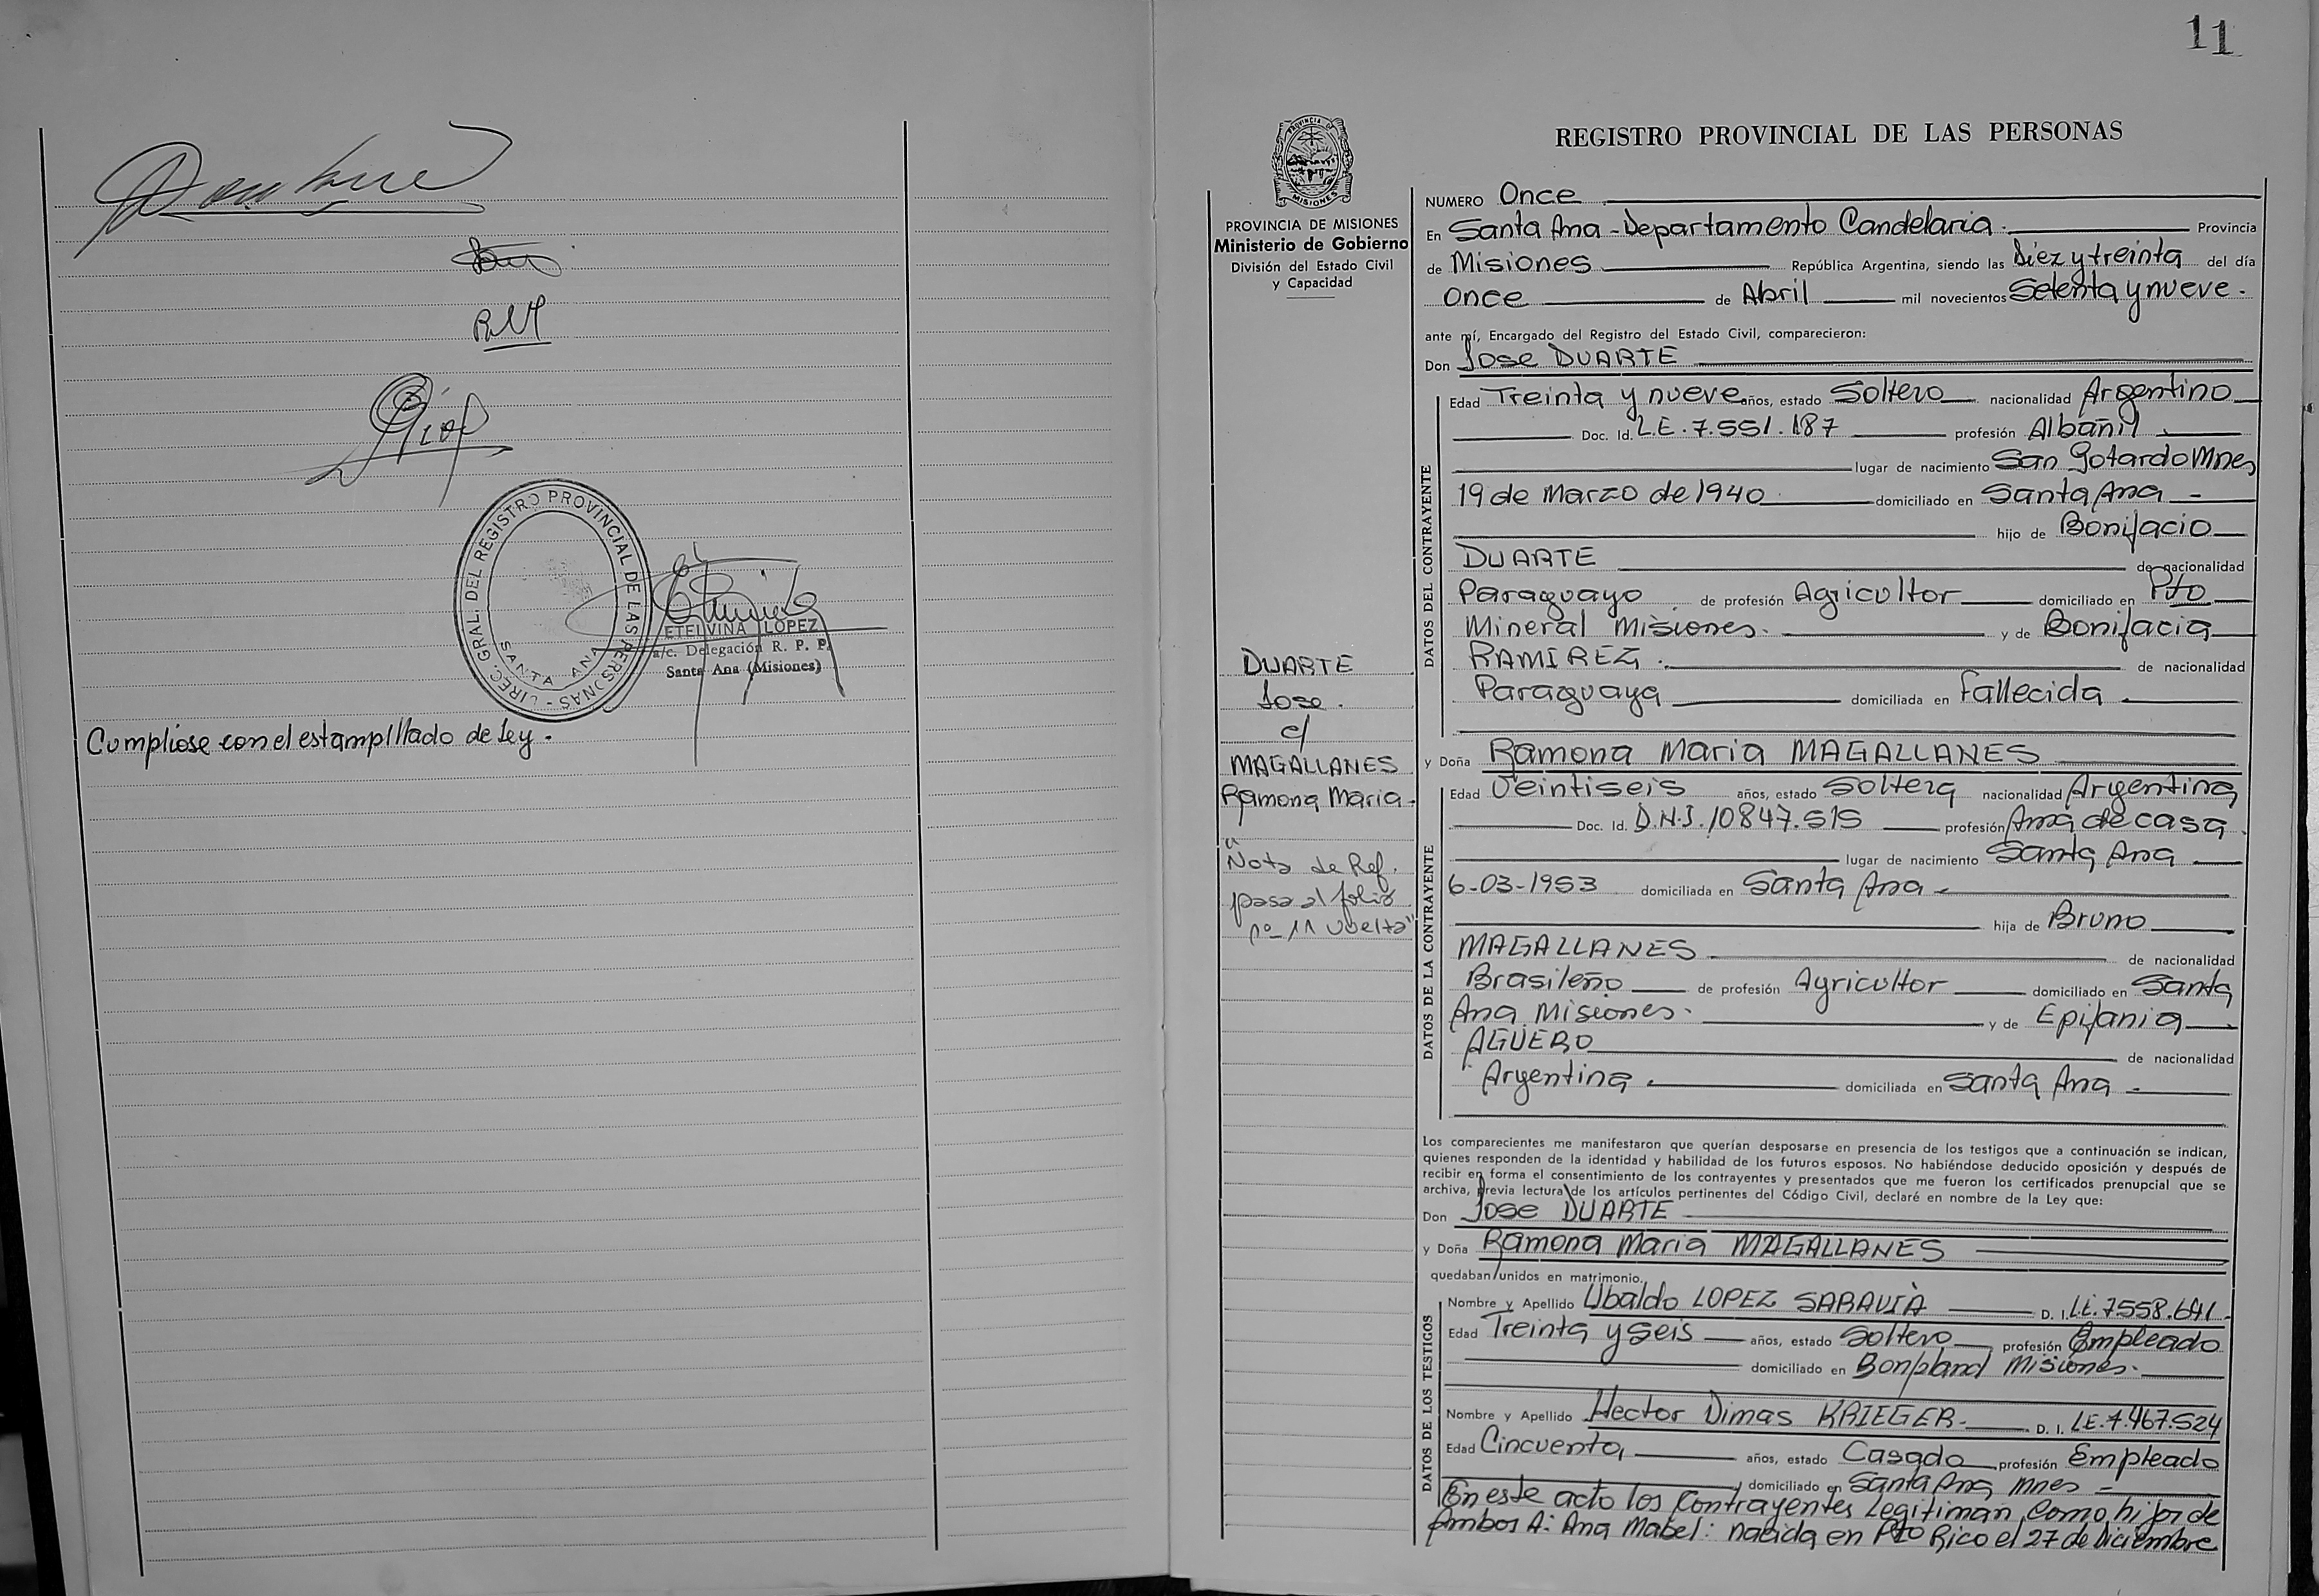 RM
DIREC. GRAL. DEL REGISTRO PROVINCIAL DE LAS PERSONAS - SANTA ANA
ETELVINA LOPEZ
a/c. Delegación R. P. P.
Santa Ana (Misiones)
Cumpliose con el estampillado de Ley.
11
PROVINCIA DE MISIONES
REGISTRO PROVINCIAL DE LAS PERSONAS
PROVINCIA DE MISIONES
Ministerio de Gobierno
División del Estado Civil
y Capacidad
DUARTE
Jose.
c/
MAGALLANES
Ramona Maria.
"Nota de Ref.
pasa al folio
nº 11 vuelta"
NUMERO Once
En Santa Ana - Departamento Candelaria. Provincia
de Misiones República Argentina, siendo las Diez y treinta del día
Once de Abril mil novecientos Setenta y nueve.
ante mí, Encargado del Registro del Estado Civil, comparecieron:
Don Jose DUARTE
DATOS DEL CONTRAYENTE
Edad Treinta y nueve años, estado Soltero nacionalidad Argentino
Doc. Id. L.E. 7.551.187 profesión Albañil
lugar de nacimiento San Gotardo Mnes
19 de Marzo de 1940 domiciliado en Santa Ana -
hijo de Bonifacio
DUARTE de nacionalidad
Paraguayo de profesión Agricultor domiciliado en Pto
Mineral Misiones. y de Bonifacia
RAMIREZ. de nacionalidad
Paraguaya domiciliada en Fallecida
y Doña Ramona Maria MAGALLANES
DATOS DE LA CONTRAYENTE
Edad Veintiseis años, estado Soltera nacionalidad Argentina
Doc. Id. D.N.I. 10847.515 profesión Ama de casa.
lugar de nacimiento Santa Ana
6-03-1953 domiciliada en Santa Ana -
hija de Bruno
MAGALLANES de nacionalidad
Brasileño de profesión Agricultor domiciliado en Santa
Ana Misiones. y de Epifania
AGÜERO de nacionalidad
Argentina. domiciliada en Santa Ana -
Los comparecientes me manifestaron que querían desposarse en presencia de los testigos que a continuación se indican,
quienes responden de la identidad y habilidad de los futuros esposos. No habiéndose deducido oposición y después de
recibir en forma el consentimiento de los contrayentes y presentados que me fueron los certificados prenupcial que se
archiva, previa lectura de los artículos pertinentes del Código Civil, declaré en nombre de la Ley que:
Don Jose DUARTE
y Doña Ramona Maria MAGALLANES
quedaban unidos en matrimonio.
DATOS DE LOS TESTIGOS
Nombre y Apellido Ubaldo LOPEZ SARAVIA D. I. L.E. 7.558.641
Edad Treinta y seis años, estado Soltero profesión Empleado
domiciliado en Bonpland Misiones.
Nombre y Apellido Hector Dimas KRIEGER. D. I. L.E. 7.467.524
Edad Cincuenta, años, estado Casado profesión Empleado
domiciliado en Santa Ana Mnes -
En este acto los Contrayentes Legitiman Como hijos de
Ambos A: Ana Mabel: nacida en Pto Rico el 27 de Diciembre